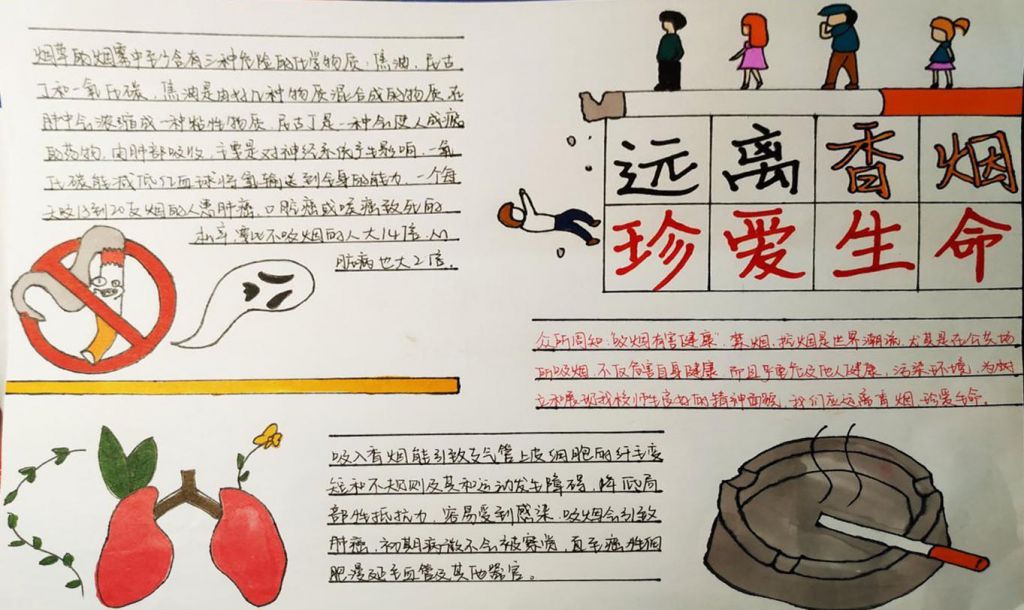 烟草的烟雾中至少含有三种危险的化学物质：焦油，尼古
丁和一氧化碳，焦油是由好几种物质混合成的物质，在
肺中会浓缩成一种粘性物质，尼古丁是一种会使人成瘾
的药物，由肺部吸收，主要是对神经系统产生影响，一氧
化碳能减低红血球将氧输送到全身的能力，一个每
天吸15到20支烟的人患肺癌，口腔癌或喉癌致死的
概率，要比不吸烟的人大14倍，心
脏病也大2倍。
远离香烟
珍爱生命
众所周知，"吸烟有害健康"，禁烟，控烟是世界潮流，尤其是在公共场
所吸烟，不仅危害自身健康，而且导危及他人健康，污染环境，为树
立和展现我校师生良好的精神面貌，我们应远离香烟，珍爱生命。
吸入香烟能引致支气管上皮细胞的纤毛变
短和不规则及其和运动发生障碍，降低局
部性抵抗力，容易受到感染，吸烟会引致
肺癌，初期病徵不会被察觉，直至癌性细
胞漫延至血管及其他器官。